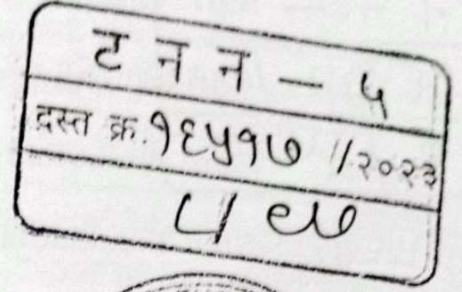 ट न न – ५
दस्त क्र. १६५१७ //२०२३
८/ ९७